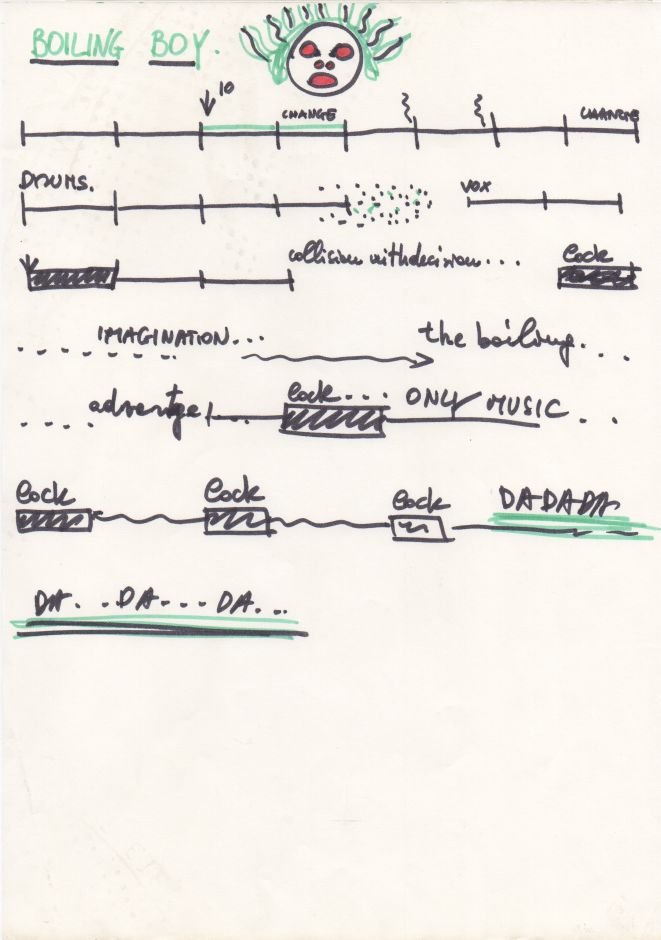 BOILING BOY.
10
CHANGE
CHANGE
DRUMS.
VOX
collision withdecision...
lock
IMAGINATION...
the boiling...
lock... ONLY MUSIC...
lock
lock
lock
DADADA
DA...DA...DA...